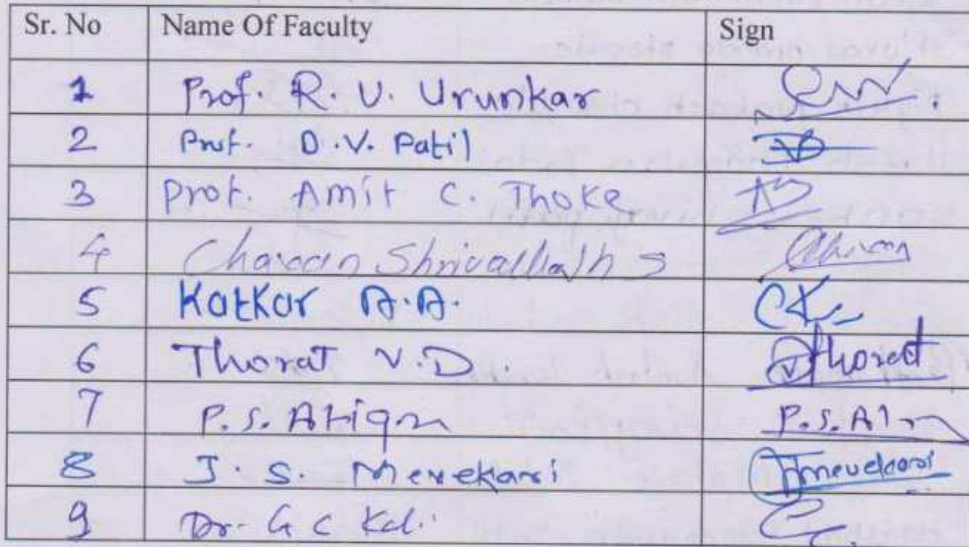 Sr. No Name Of Faculty Sign
1 Prof. R. V. Urunkar
2 Prof. D.V. Patil
3 Prof. Amit C. Thoke
4 Chavan Shrivallabh S
5 Katkar A.A.
6 Thorat V.D. Thorat
7 P.S. P.S.
8 J. S. Mevekari Jmevekari
9 Dr. G C